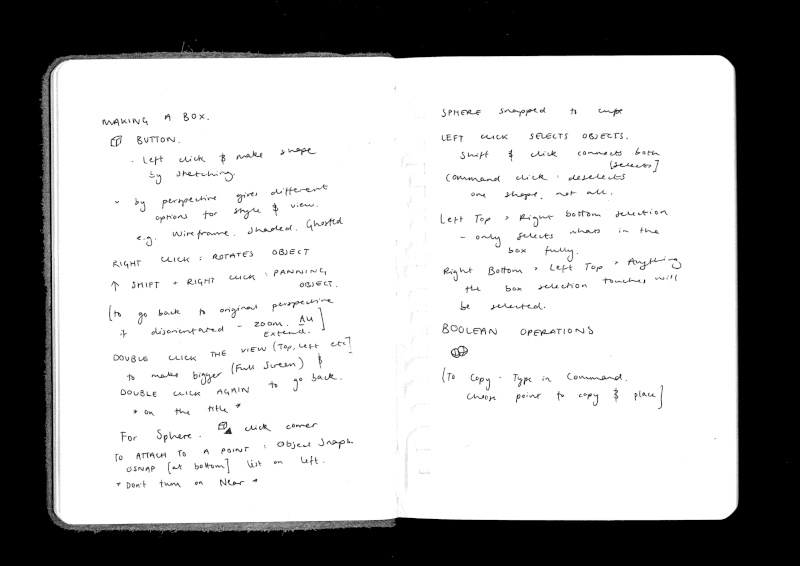 MAKING A BOX.
BUTTON.
- Left click & make shape
by stretching.
- by perspective gives different
options for style & view.
e.g. Wireframe. Shaded. Ghosted
RIGHT CLICK : ROTATES OBJECT
↑ SHIFT + RIGHT CLICK : PANNING
OBJECT.
[to go back to original perspective
if disorientated - ZOOM. All
Extend. ]
DOUBLE CLICK THE VIEW (Top, Left etc]
to make bigger (Full Screen) &
DOUBLE CLICK AGAIN to go back.
* on the title *
For Sphere. click corner
TO ATTACH TO A POINT : Object Snaps.
OSNAP [at bottom] list on left.
* Don't turn on Near *
SPHERE snapped to
LEFT CLICK SELECTS OBJECTS.
Shift & click connects both
[selects]
Command click : deselects
one shape, not all.
Left Top > Right bottom selection
- only selects whats in the
box fully.
Right Bottom > Left Top > Anything
the box selection touches will
be selected.
BOOLEAN OPERATIONS
[To Copy - Type in Command.
Choose point to copy & place]